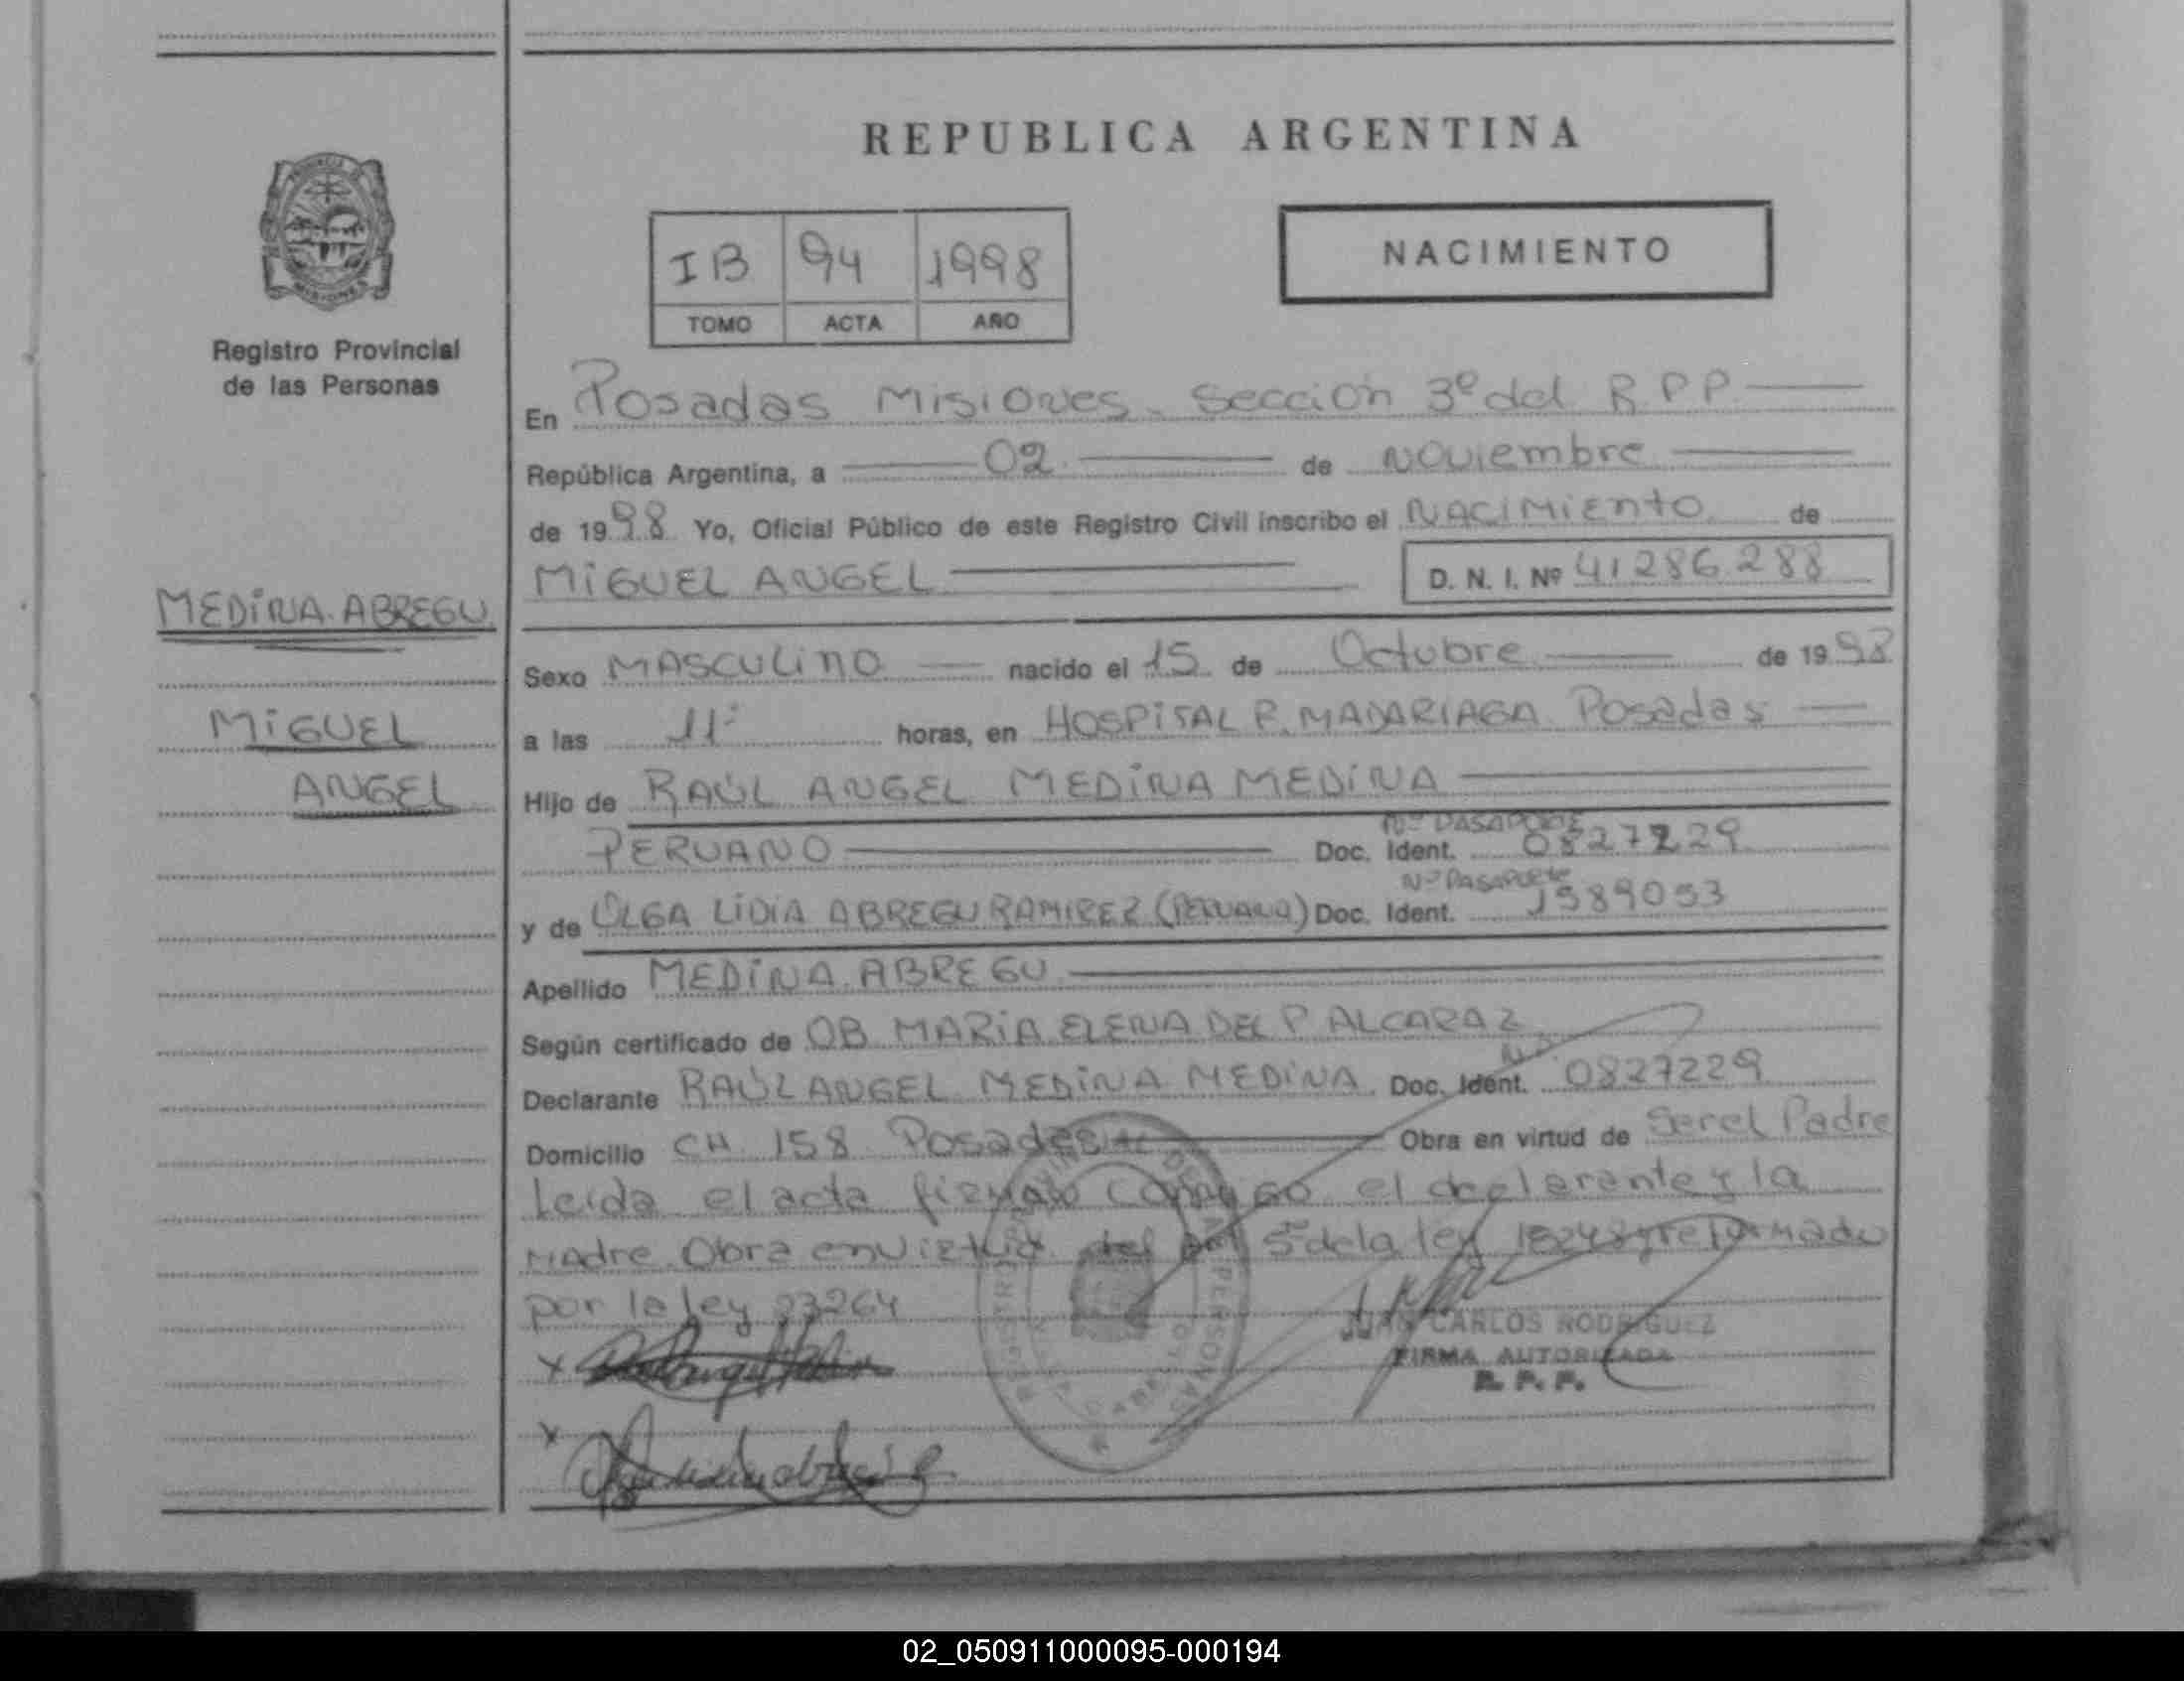 REPUBLICA ARGENTINA
PROVINCIA
MISIONES
Registro Provincial
de las Personas
IB 94 1998
TOMO ACTA AÑO
NACIMIENTO
En Posadas Misiones. Sección 3º del R.P.P.
República Argentina, a 02 de Noviembre
de 1998 Yo, Oficial Público de este Registro Civil inscribo el NACIMIENTO de
MIGUEL ANGEL D. N. I. Nº 41.286.288
MEDINA ABREGU
MIGUEL
ANGEL
Sexo MASCULINO nacido el 15 de Octubre de 1998
a las 11 horas, en HOSPITAL R. MADARIAGA Posadas
Hijo de RAÚL ANGEL MEDINA MEDINA
Nº PASAPORTE
PERUANO Doc. Ident. 0827229
Nº PASAPORTE
y de OLGA LIDIA ABREGU RAMIREZ (PERUANA) Doc. Ident. 1589053
Apellido MEDINA ABREGU
Según certificado de OB MARIA ELENA DEL P ALCARAZ
Declarante RAÚL ANGEL MEDINA MEDINA Doc. Ident. 0827229
Domicilio CH 158 Posadas Obra en virtud de Ser el Padre
Leida el acta firman conmigo el declarante y la
Madre. Obra en virtud del art 5º de la ley 18248 y reformado
por la ley 23264
JUAN CARLOS RODRIGUEZ
FIRMA AUTORIZADA
R. P. P.
02_050911000095-000194